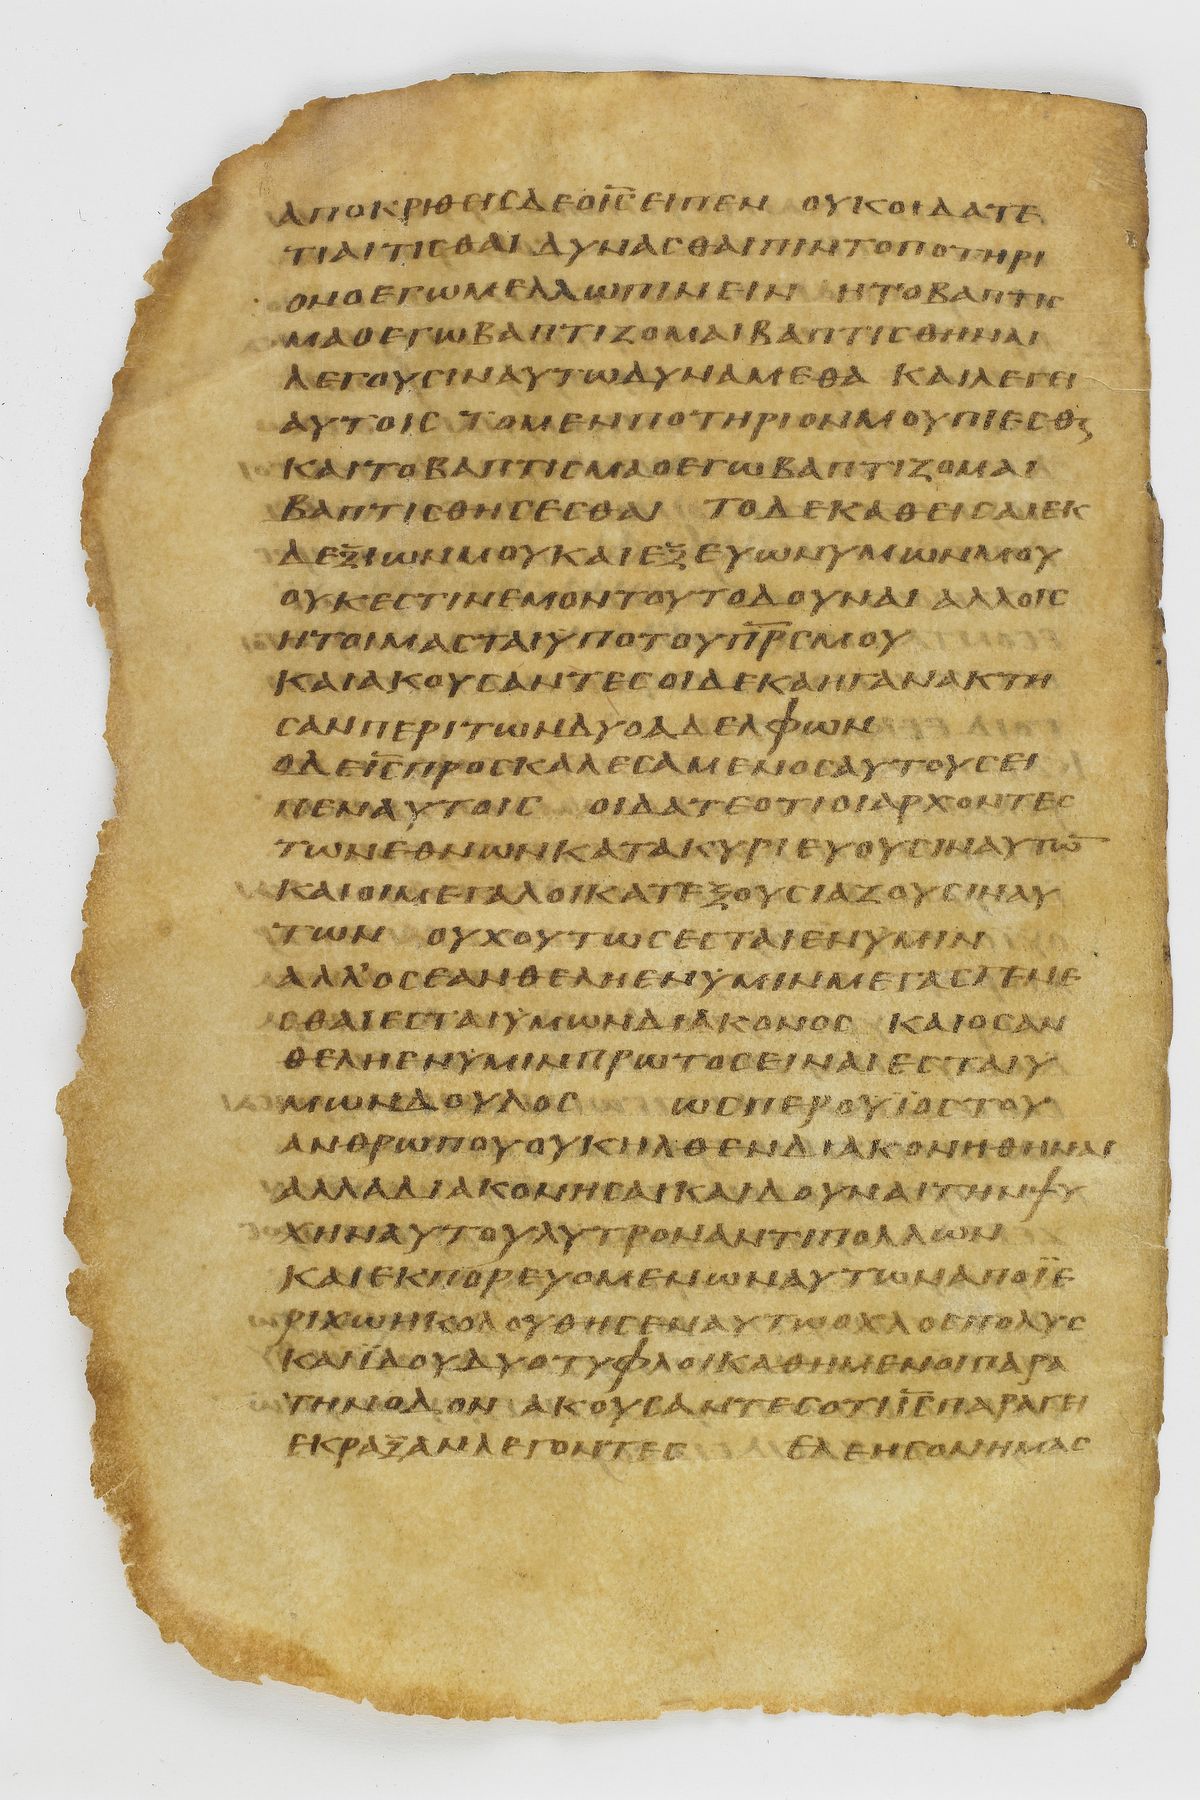 ΑΠΟΚΡΙΘΕΙϹΔΕΟΙ̅Ϲ̅ΕΙΠΕΝ ΟΥΚΟΙΔΑΤΕ
ΤΙΑΙΤΙϹΘΑΙ ΔΥΝΑϹΘΑΙΠΙΝΤΟΠΟΤΗΡΙ
ΟΝΟΕΓΩΜΕΛΛΩΠΙΝΕΙΝ ΗΤΟΒΑΠΤΙϹ
ΜΑΟΕΓΩΒΑΠΤΙΖΟΜΑΙΒΑΠΤΙϹΘΗΝΑΙ
ΛΕΓΟΥϹΙΝΑΥΤΩΔΥΝΑΜΕΘΑ ΚΑΙΛΕΓΕΙ
ΑΥΤΟΙϹ ΤΟΜΕΝΠΟΤΗΡΙΟΝΜΟΥΠΙΕϹΘϗ
ΚΑΙΤΟΒΑΠΤΙϹΜΑΟΕΓΩΒΑΠΤΙΖΟΜΑΙ
ΒΑΠΤΙϹΘΗϹΕϹΘΑΙ ΤΟΔΕΚΑΘΕΙϹΑΙΕΚ
ΔΕΞΙΩΝΜΟΥΚΑΙΕΞΕΥΩΝΥΜΩΝΜΟΥ
ΟΥΚΕϹΤΙΝΕΜΟΝΤΟΥΤΟΔΟΥΝΑΙ ΑΛΛΟΙϹ
ΗΤΟΙΜΑϹΤΑΙΥΠΟΤΟΥΠ̅Ρ̅Ϲ̅ΜΟΥ
ΚΑΙΑΚΟΥϹΑΝΤΕϹΟΙΔΕΚΑΗΓΑΝΑΚΤΗ
ϹΑΝΠΕΡΙΤΩΝΔΥΟΑΔΕΛΦΩΝ
ΟΔΕΙ̅Ϲ̅ΠΡΟϹΚΑΛΕϹΑΜΕΝΟϹΑΥΤΟΥϹΕΙ
ΠΕΝΑΥΤΟΙϹ ΟΙΔΑΤΕΟΤΙΟΙΑΡΧΟΝΤΕϹ
ΤΩΝΕΘΝΩΝΚΑΤΑΚΥΡΙΕΥΟΥϹΙΝΑΥΤΩ̅
ΚΑΙΟΙΜΕΓΑΛΟΙΚΑΤΕΞΟΥϹΙΑΖΟΥϹΙΝΑΥ
ΤΩΝ ΟΥΧΟΥΤΩϹΕϹΤΑΙΕΝΥΜΙΝ
ΑΛΛ'ΟϹΕΑΝΘΕΛΗΕΝΥΜΙΝΜΕΓΑϹΓΕΝΕ
ϹΘΑΙΕϹΤΑΙΥΜΩΝΔΙΑΚΟΝΟϹ ΚΑΙΟϹΑΝ
ΘΕΛΗΕΝΥΜΙΝΠΡΩΤΟϹΕΙΝΑΙΕϹΤΑΙΥ
ΜΩΝΔΟΥΛΟϹ ΩϹΠΕΡΟΥΪΟϹΤΟΥ
ΑΝΘΡΩΠΟΥΟΥΚΗΛΘΕΝΔΙΑΚΟΝΗΘΗΝΑΙ
ΑΛΛΑΔΙΑΚΟΝΗϹΑΙΚΑΙΔΟΥΝΑΙΤΗΝΨΥ
ΧΗΝΑΥΤΟΥΛΥΤΡΟΝΑΝΤΙΠΟΛΛΩΝ
ΚΑΙΕΚΠΟΡΕΥΟΜΕΝΩΝΑΥΤΩΝΑΠΟΪΕ
ΡΙΧΩΗΚΟΛΟΥΘΗϹΕΝΑΥΤΩΟΧΛΟϹΠΟΛΥϹ
ΚΑΙΪΔΟΥΔΥΟΤΥΦΛΟΙΚΑΘΗΜΕΝΟΙΠΑΡΑ
ΤΗΝΟΔΟΝ ΑΚΟΥϹΑΝΤΕϹΟΤΙΙ̅Ϲ̅ΠΑΡΑΓΕΙ
ΕΚΡΑΞΑΝΛΕΓΟΝΤΕϹ ΕΛΕΗϹΟΝΗΜΑϹ